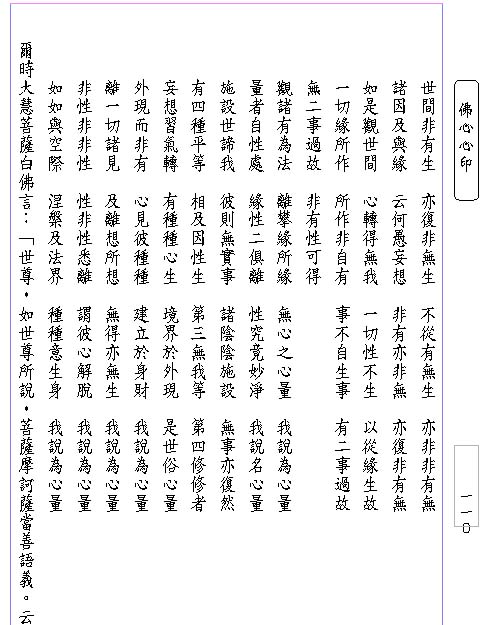 佛心心印
世間非有生　亦復非無生　不從有無生　亦非非有無
諸因及與緣　云何愚妄想　非有亦非無　亦復非有無
如是觀世間　心轉得無我　一切性不生　以從緣生故
一切緣所作　所作非自有　事不自生事　有二事過故
無二事過故　非有性可得
觀諸有為法　離攀緣所緣　無心之心量　我說為心量
量者自性處　緣性二俱離　性究竟妙淨　我說名心量
施設世諦我　彼則無實事　諸陰陰施設　無事亦復然
有四種平等　相及因性生　第三無我等　第四修修者
妄想習氣轉　有種種心生　境界於外現　是世俗心量
外現而非有　心見彼種種　建立於身財　我說為心量
離一切諸見　及離想所想　無得亦無生　我說為心量
非性非非性　性非性悉離　謂彼心解脫　我說為心量
如如與空際　涅槃及法界　種種意生身　我說為心量
爾時大慧菩薩白佛言：「世尊，如世尊所說，菩薩摩訶薩當善語義。云
一一○